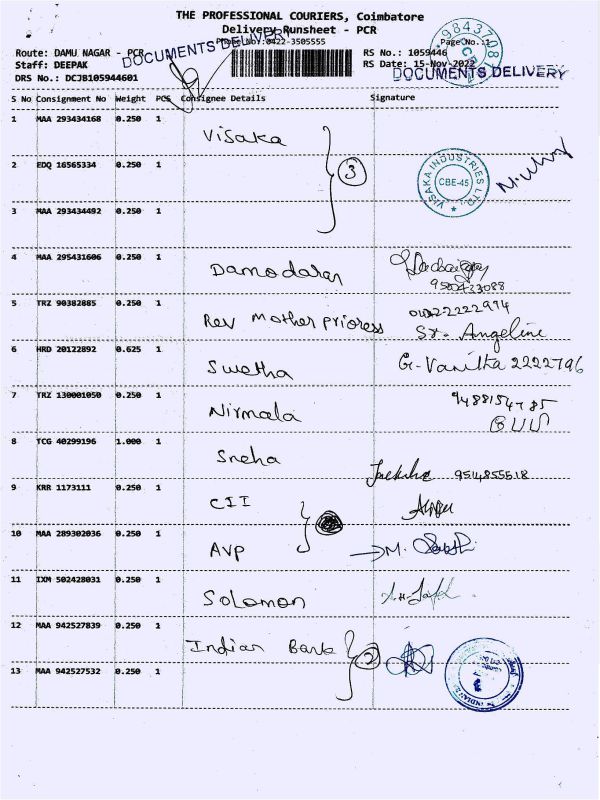 THE PROFESSIONAL COURIERS, Coimbatore
Delivery Runsheet - PCR
Phone No:0422-3505555
Page No.:1
Route: DAMU NAGAR - PCR
RS No.: 1059446
Staff: DEEPAK
RS Date: 15-Nov-2022
DRS No.: DCJB105944601
DOCUMENTS DELIVERY
DOCUMENTS DELIVERY
S No Consignment No Weight PCS Consignee Details Signature
1 MAA 293434168 0.250 1 Visaka
3
2 EDQ 16565334 0.250 1
VISAKA INDUSTRIES LTD.,
CBE-45
3 MAA 293434492 0.250 1
4 MAA 295431606 0.250 1 Damodaran
5 TRZ 90382885 0.250 1 Rev Mother Prioress
Sr. Angeline
6 HRD 20122892 0.625 1 Swetha G. Vanitha 2222796
7 TRZ 130001050 0.250 1 Nirmala 9488154785
8 TCG 40299196 1.000 1 Sneha
9514855518
9 KRR 1173111 0.250 1 CII
10 MAA 289302036 0.250 1 AVP M.
11 IXM 502428031 0.250 1 Solomon
12 MAA 942527839 0.250 1 Indian Bank
2
13 MAA 942527532 0.250 1